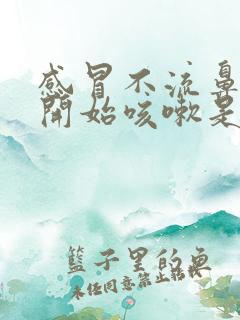 感冒不流鼻
開始咳嗽是
籃子里的魚
未经同意禁止转载